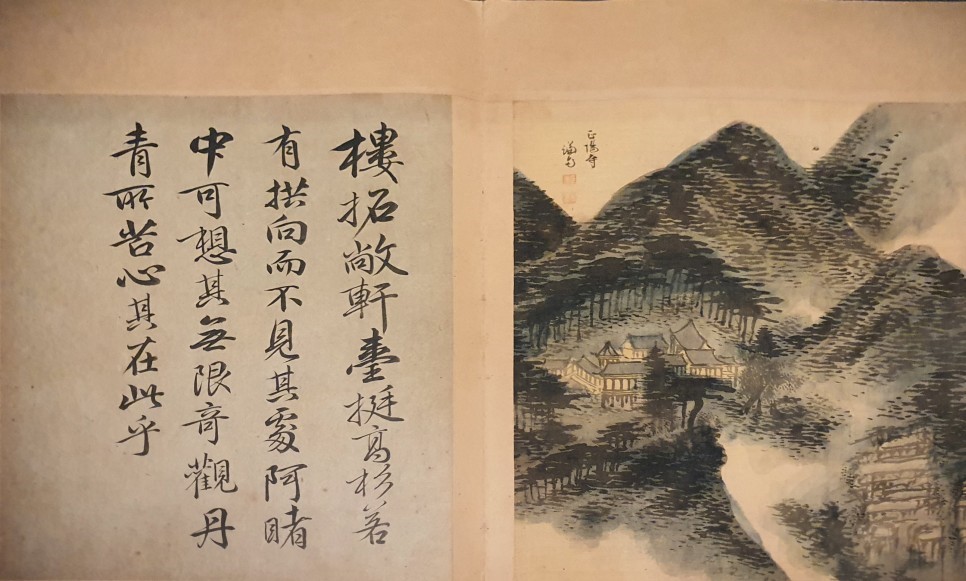 正陽寺
樓拓敞軒臺挺高杉若
有拱向而不見其處阿睹
中可想其無限奇觀丹
青所苦心其在此乎